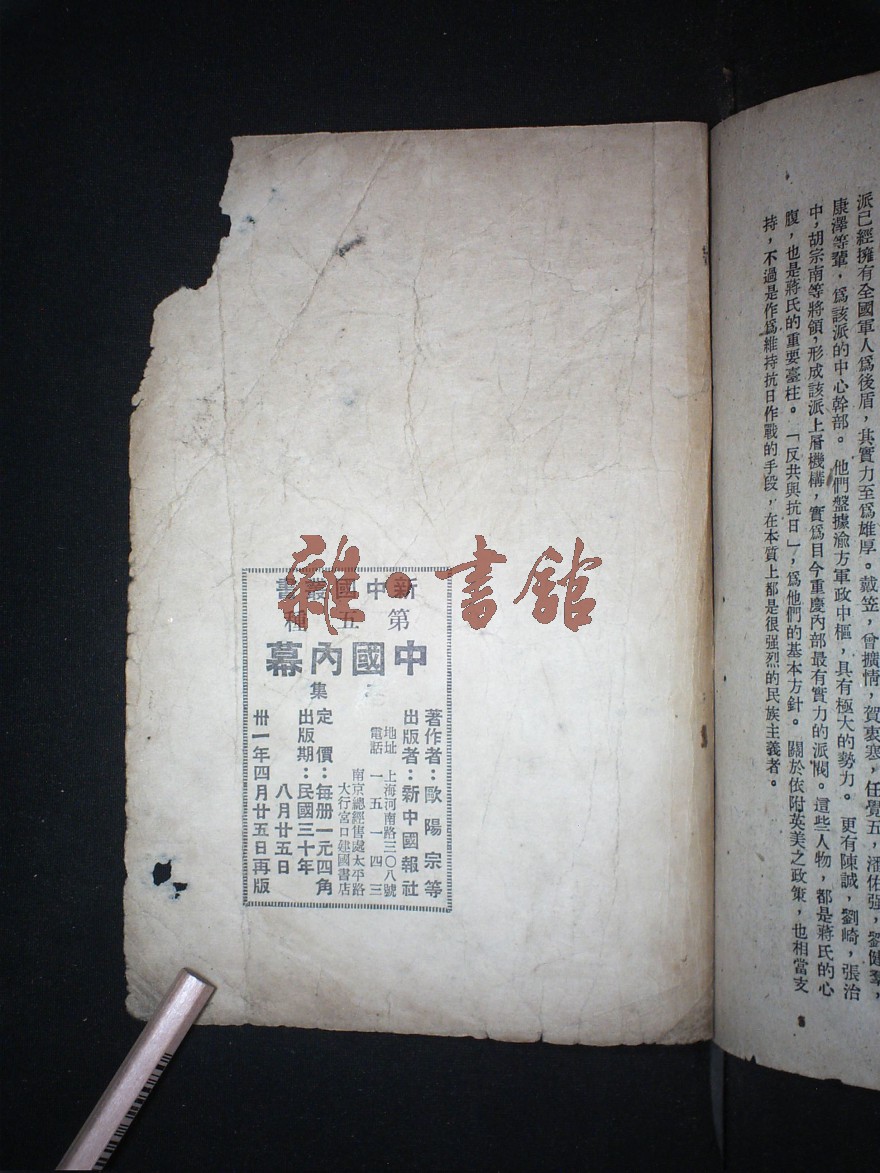 派已經擁有全國軍人爲後盾，其實力至爲雄厚。戴笠，曾擴情，賀衷寒，任覺五，潘佑强，劉健羣，
康澤等輩，爲該派的中心幹部。他們盤據渝方軍政中樞，具有極大的勢力。更有陳誠，劉峙，張治
中，胡宗南等將領，形成該派上層機構，實爲目今重慶內部最有實力的派閥。這些人物，都是蔣氏的心
腹，也是蔣氏的重要臺柱。「反共與抗日」，爲他們的基本方針。關於依附英美之政策，也相當支
持，不過是作爲維持抗日作戰的手段，在本質上都是很强烈的民族主義者。
雜·書館
新中國叢書
第五種
中國內幕
集
著作者：歐陽宗等
出版者：新中國報社
地址 上海河南路三〇八號
電話 一五一四三
南京總經售處太平路
大行宮口建國書店
定價：每册一元四角
出版期：民國三十年
八月廿五日
卅一年四月廿五日再版